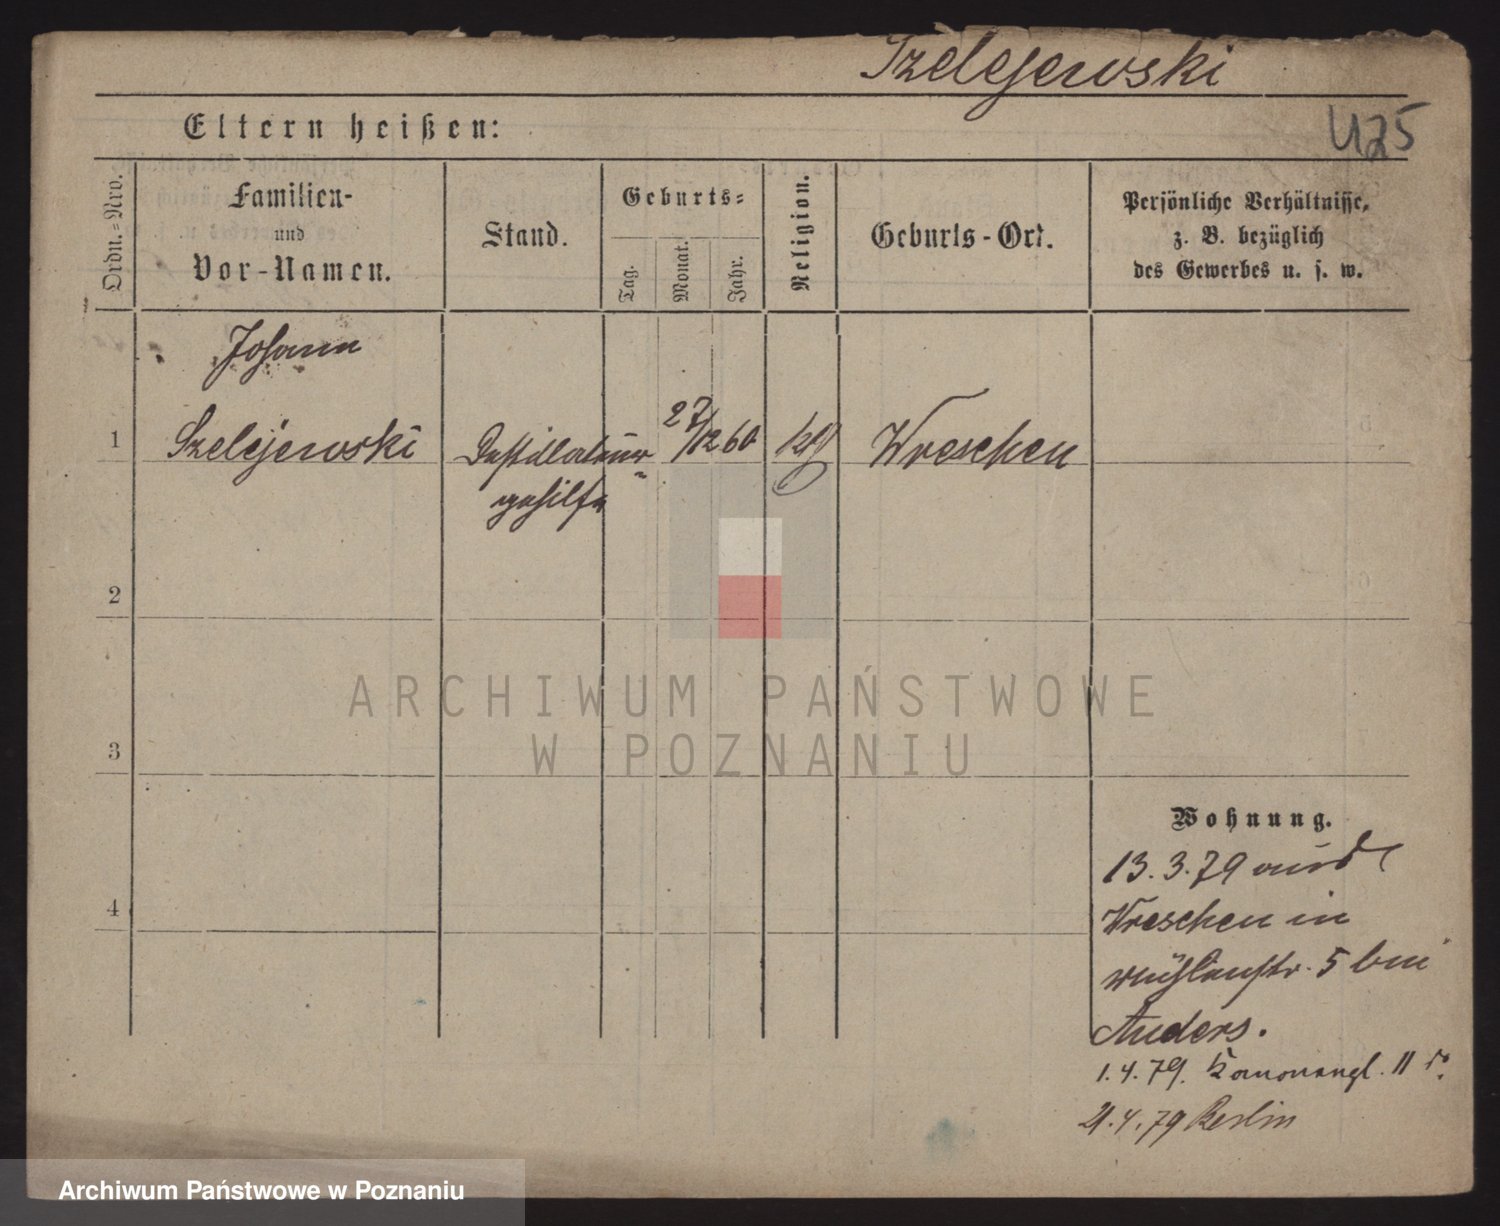 Szelejewski
425
Eltern heißen:
Ordn.-Nro.
Familien-
und
Vor-Namen.
Stand.
Geburts-
Tag.
Monat.
Jahr.
Religion.
Geburts-Ort.
Persönliche Verhältnisse,
z. B. bezüglich
des Gewerbes u. s. w.
Johann
1 Szelejewski Destillateur- 27/12 60 kth Wreschen
gehilfe
2
3
4
Wohnung.
13.3.79 aus
Wreschen in
Mühlenstr. 5 bei
Anders.
1.4.79. Kanonengl. 11
21.4.79 Berlin
ARCHIWUM PAŃSTWOWE
W POZNANIU
Archiwum Państwowe w Poznaniu